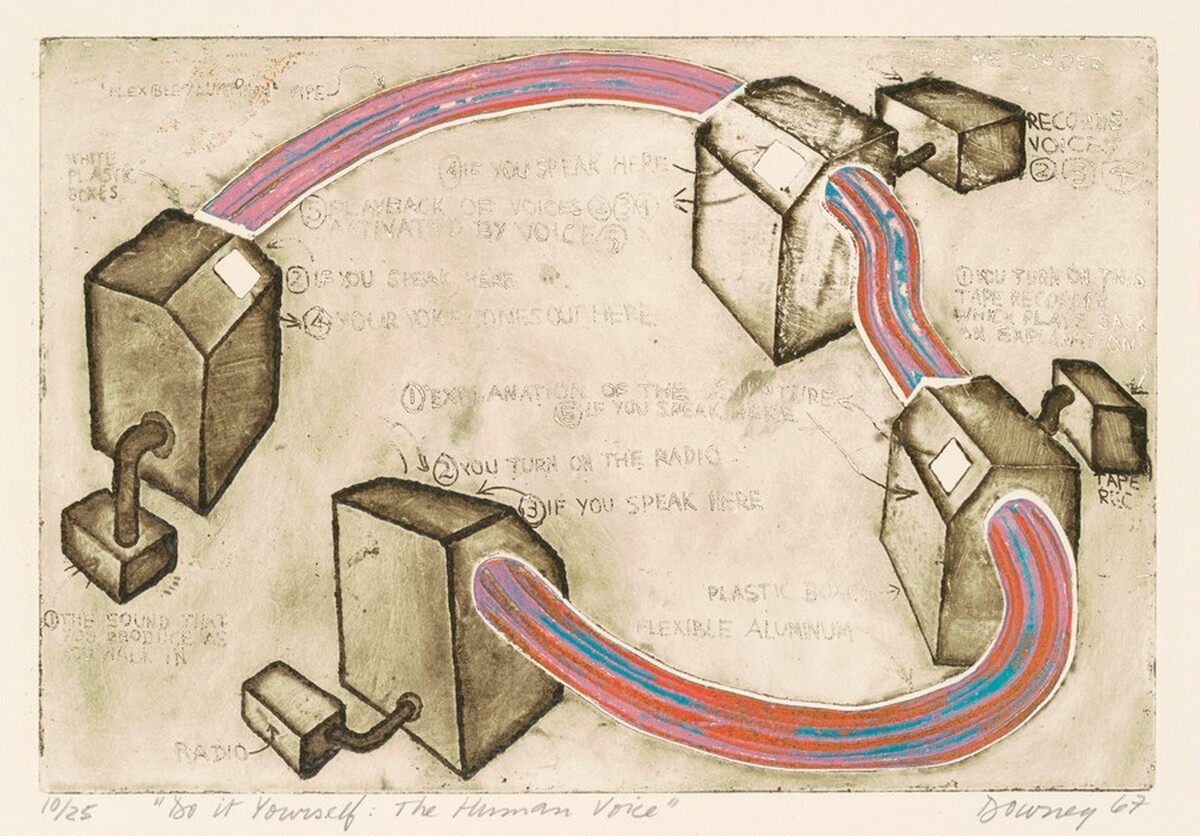 "FLEXIBLE ALUMINUM" PIPE
TAPE RECORDER
WHITE
PLASTIC
BOXES
RECORDS
VOICES
② ③ ④
④ IF YOU SPEAK HERE
⑤ PLAYBACK OF VOICES ② ③
ACTIVATED BY VOICE
② IF YOU SPEAK HERE
④ YOUR VOICE COMES OUT HERE
① YOU TURN ON THIS
TAPE RECORDER
WHICH PLAYS BACK
AN EXPLANATION
① EXPLANATION OF THE SCULPTURE
IF YOU SPEAK HERE
② YOU TURN ON THE RADIO
③ IF YOU SPEAK HERE
TAPE
REC
PLASTIC BOX
FLEXIBLE ALUMINUM
① THE SOUND THAT
YOU PRODUCE AS
YOU WALK IN
RADIO
10/25 "Do it Yourself: The Human Voice" Downey 67